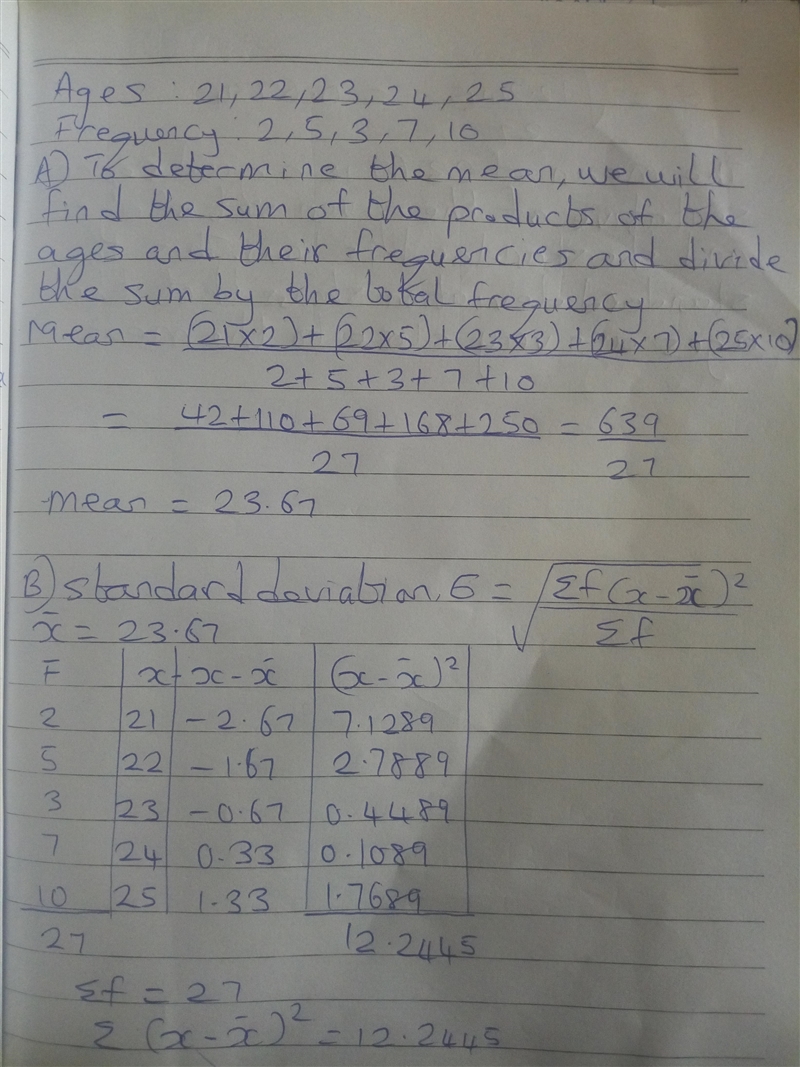 Ages : 21, 22, 23, 24, 25
Frequency : 2, 5, 3, 7, 10
A) To determine the mean, we will
find the sum of the products of the
ages and their frequencies and divide
the sum by the total frequency
Mean = (21×2)+(22×5)+(23×3)+(24×7)+(25×10)
2+5+3+7+10
= 42+110+69+168+250 = 639
27 27
mean = 23.67
B) standard deviation, б = √Σf(x-x̄)²
Σf
x̄ = 23.67
F x x-x̄ (x-x̄)²
2 21 -2.67 7.1289
5 22 -1.67 2.7889
3 23 -0.67 0.4489
7 24 0.33 0.1089
10 25 1.33 1.7689
27 12.2445
Σf = 27
Σ (x-x̄)² = 12.2445